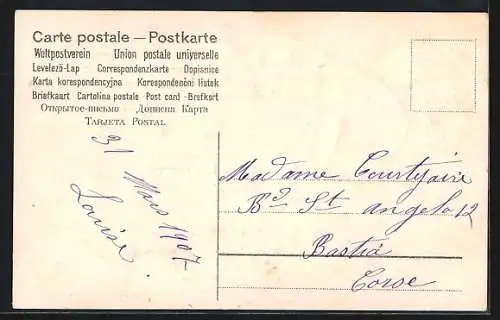 Carte postale — Postkarte
Weltpostverein — Union postale universelle
Levelező-Lap — Correspondenzkarte — Dopisnice
Karta korespondencyjna — Korespondenční lístek
Briefkaart — Cartolina postale — Post card — Brefkort
Открытое-письмо — Дописна Карта
TARJETA POSTAL
31 Mars 1907
Louise
Madame Courtyaire
Bd St angelo 12
Bastia
Corse